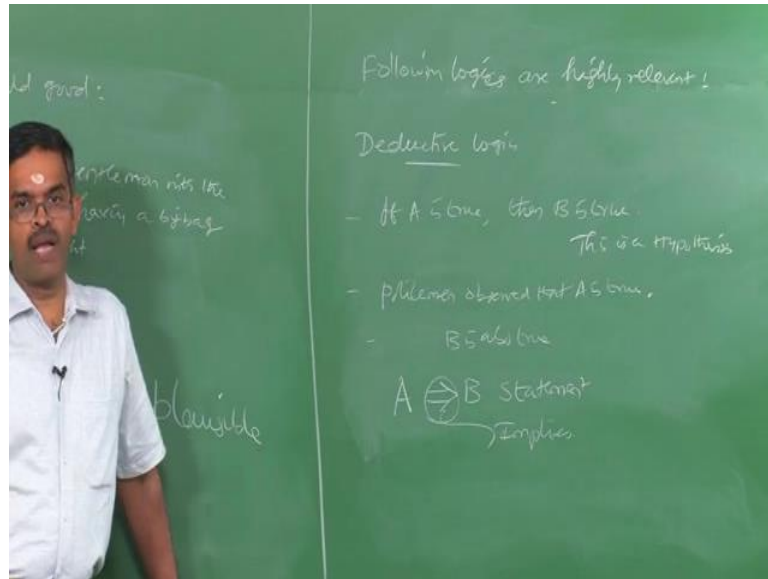 ld good:
entleman with the
having a big bag
Plausible
Following logics are highly relevant!
Deductive logic
- If A is true, then B is true.
This is a Hypothesis
- Policeman observed that A is true.
- B is also true
A ⇒ B Statement
Implies